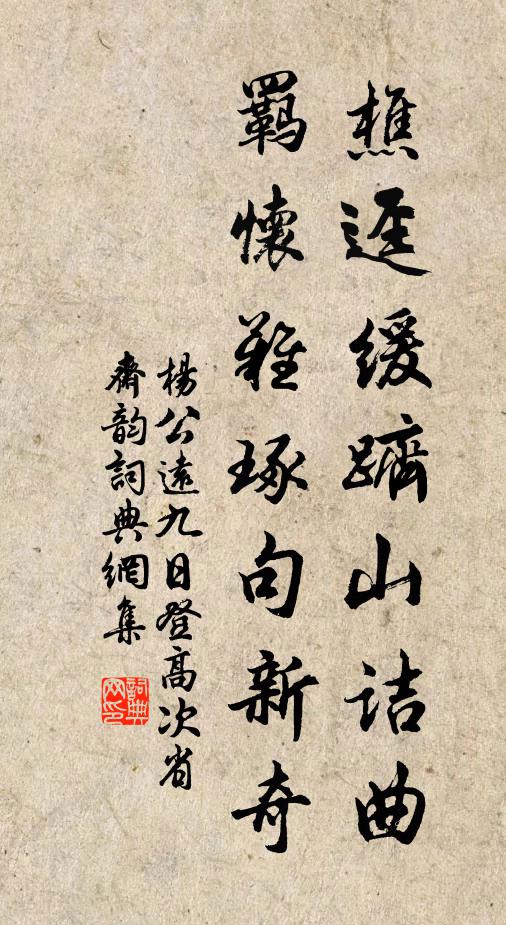 樵逕緩躋山詰曲
羈懷難琢句新奇
楊公遠九日登高次省
齋韵詞典網集
詞典网印